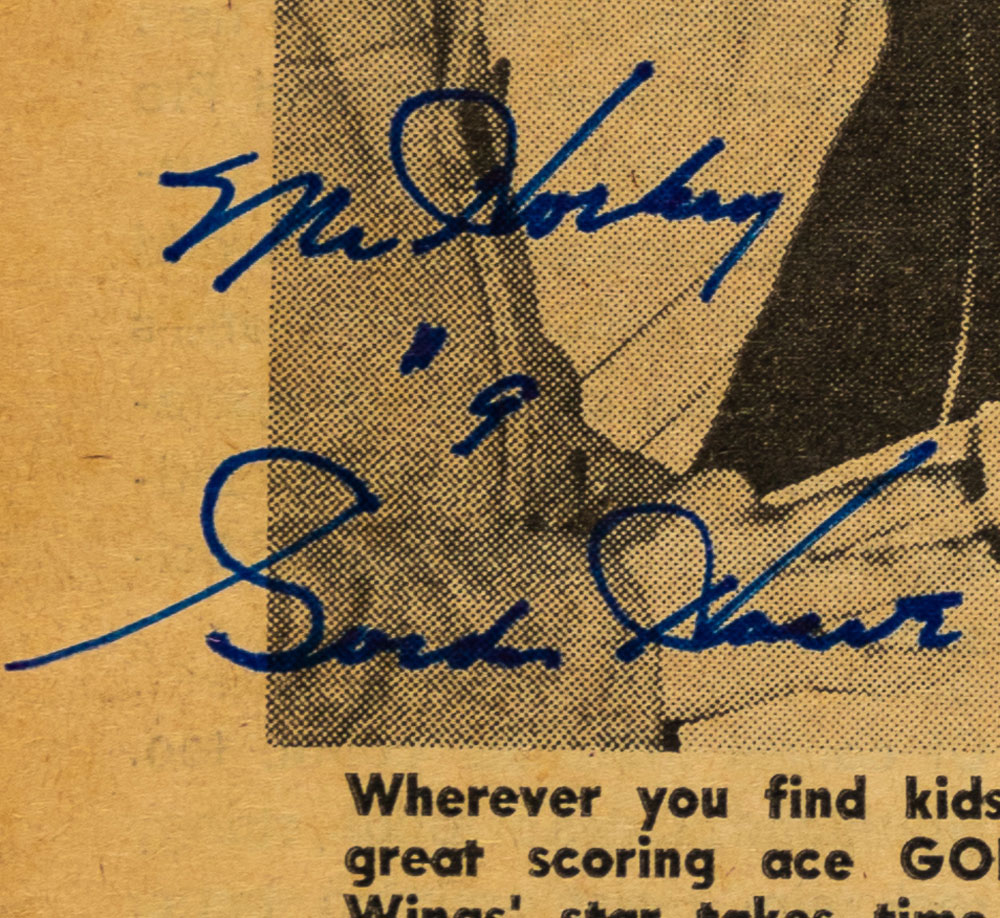 Mr Hockey
"9
Gordie Howe
Wherever you find kids
great scoring ace GO
Wings' star takes time